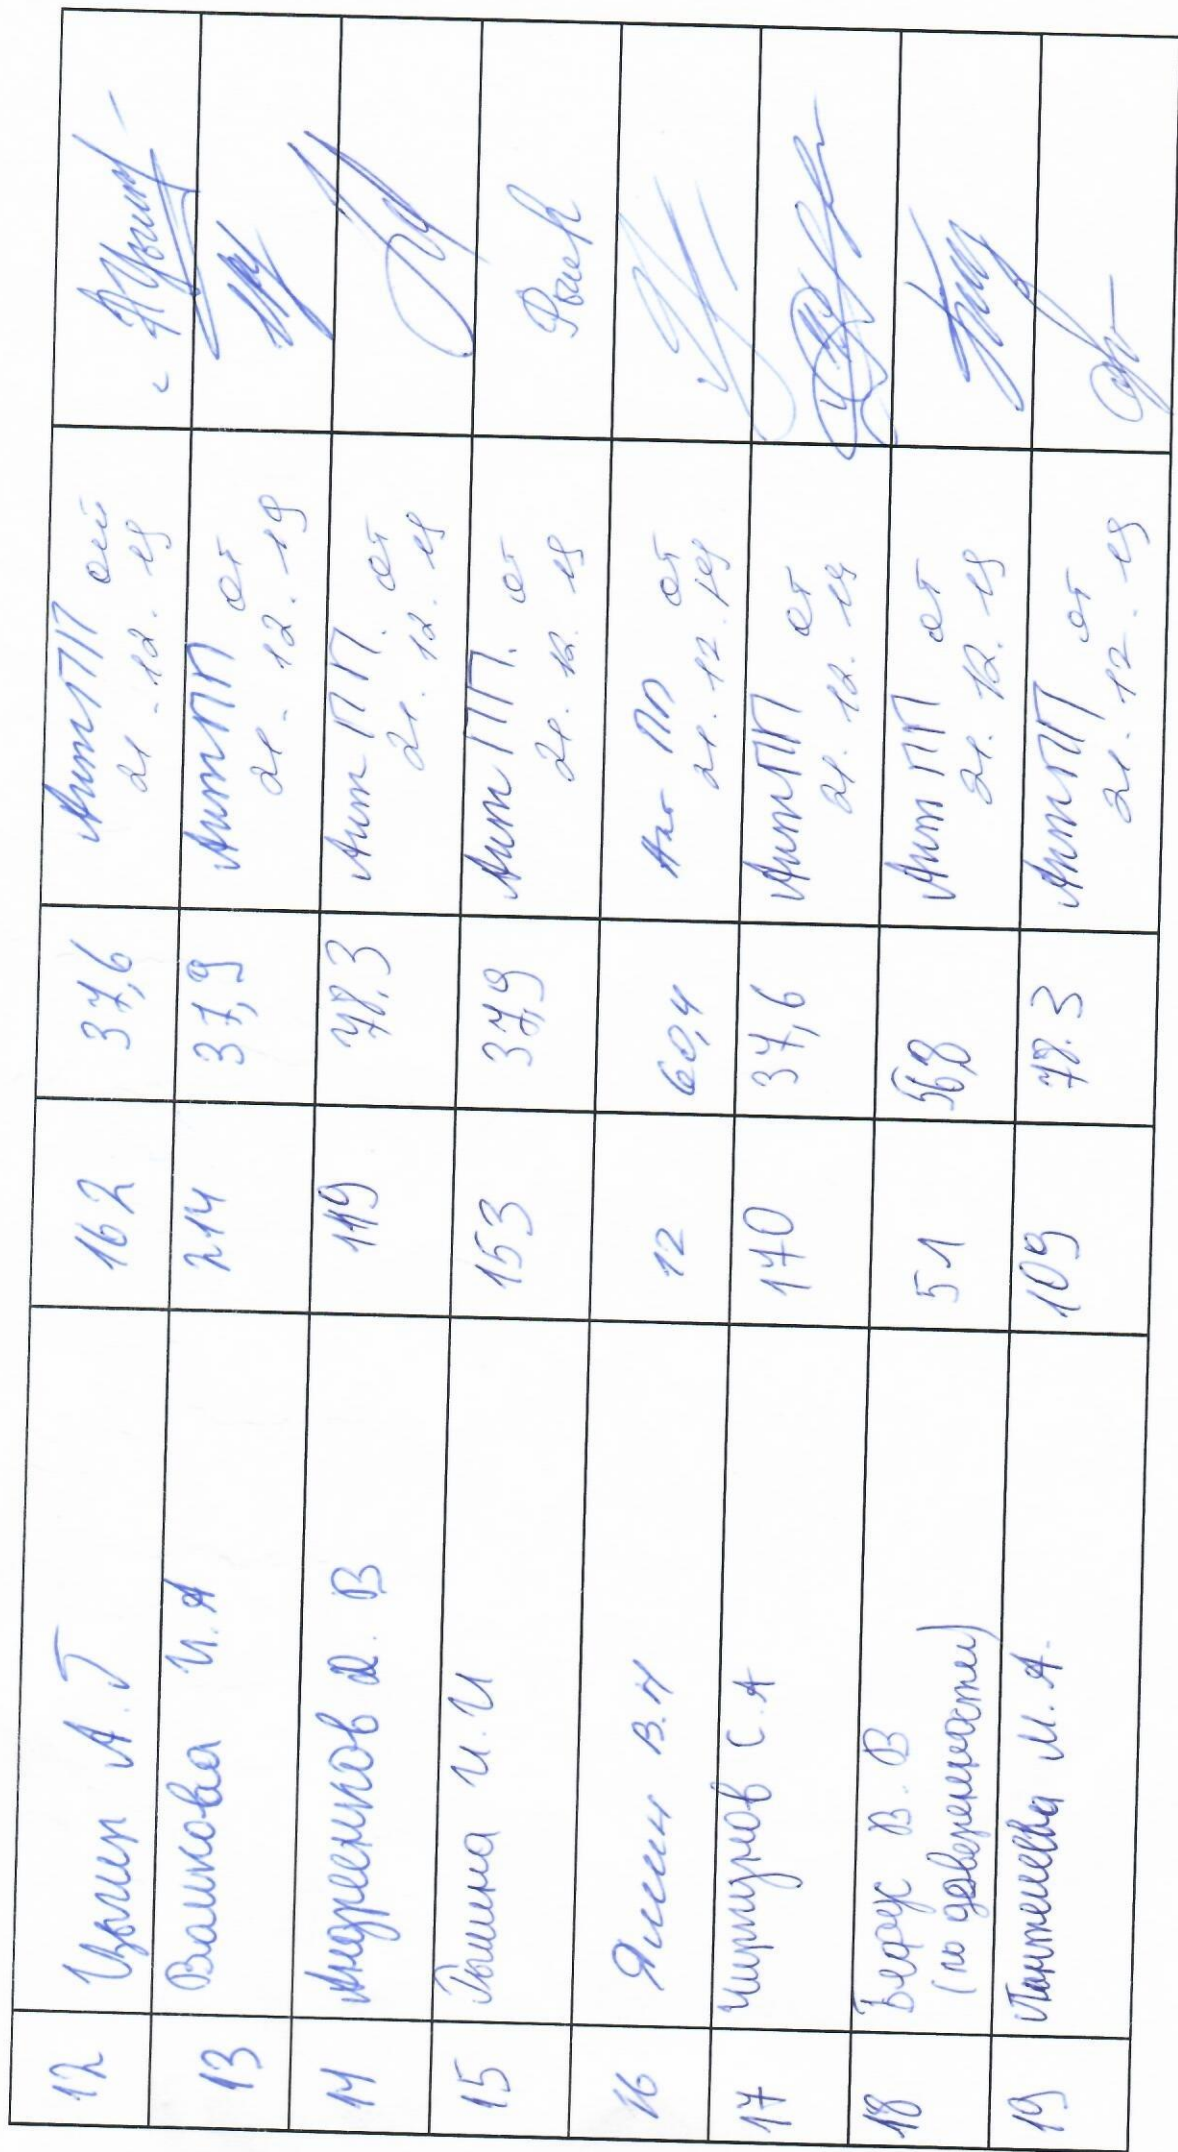 12 Цыпин А.Г 162 37,6 АктПП от
21.12.19
13 Вашкова И.А 214 37,9 АктПП от
21.12.19
14 Андреенков Д.В 119 78,3 АктПП. от
21.12.19
15 И.И 153 37,9 АктПП. от
21.12.19
16 Яшин В.Н 12 60,4 Акт ПП от
21.12.19
17 С.А 170 37,6 АктПП от
21.12.19
18 В.В 51 56,8 АктПП от
(по доверенности) 21.12.19
19 Пантелеева М.А. 109 78.3 АктПП от
21.12.19